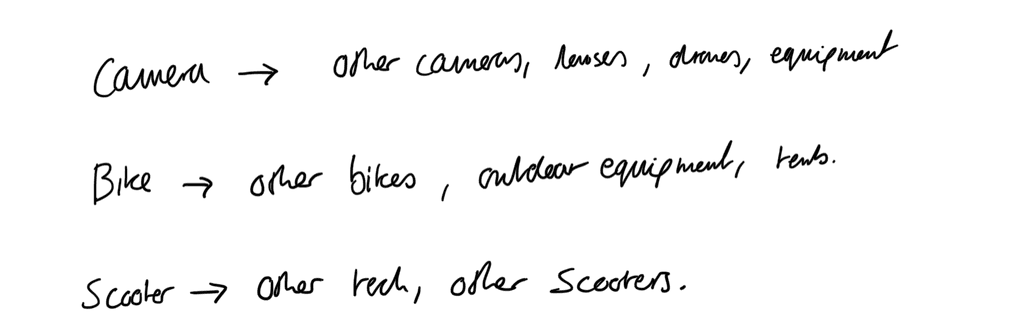 Camera → other cameras, lenses, drones, equipment
Bike → other bikes, outdoor equipment, tents.
Scooter → other tech, other scooters.